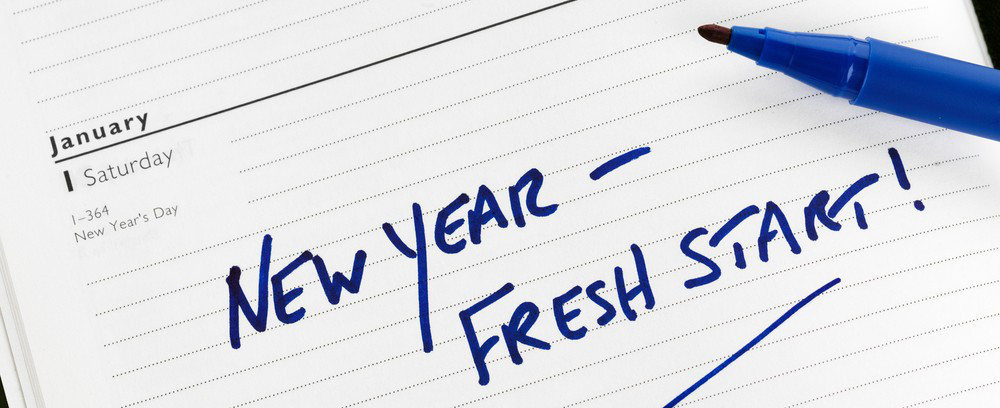 January
1 Saturday
1-364
New Year's Day
NEW YEAR -
FRESH START!